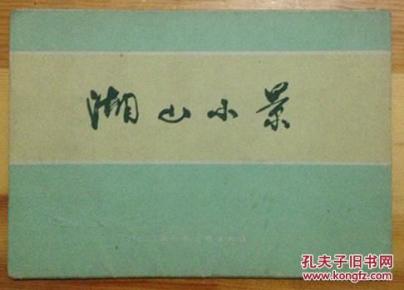 湖山小景
孔夫子旧书网
www.kongfz.com